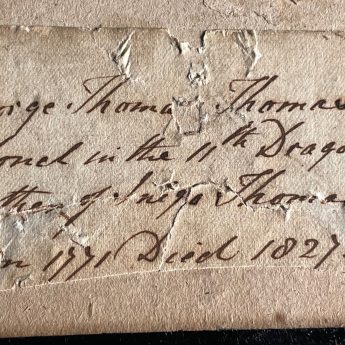 orge Thomas Thomas
onel in the 11th Drago
ther of Inigo Thomas
n 1771 Died 1827.